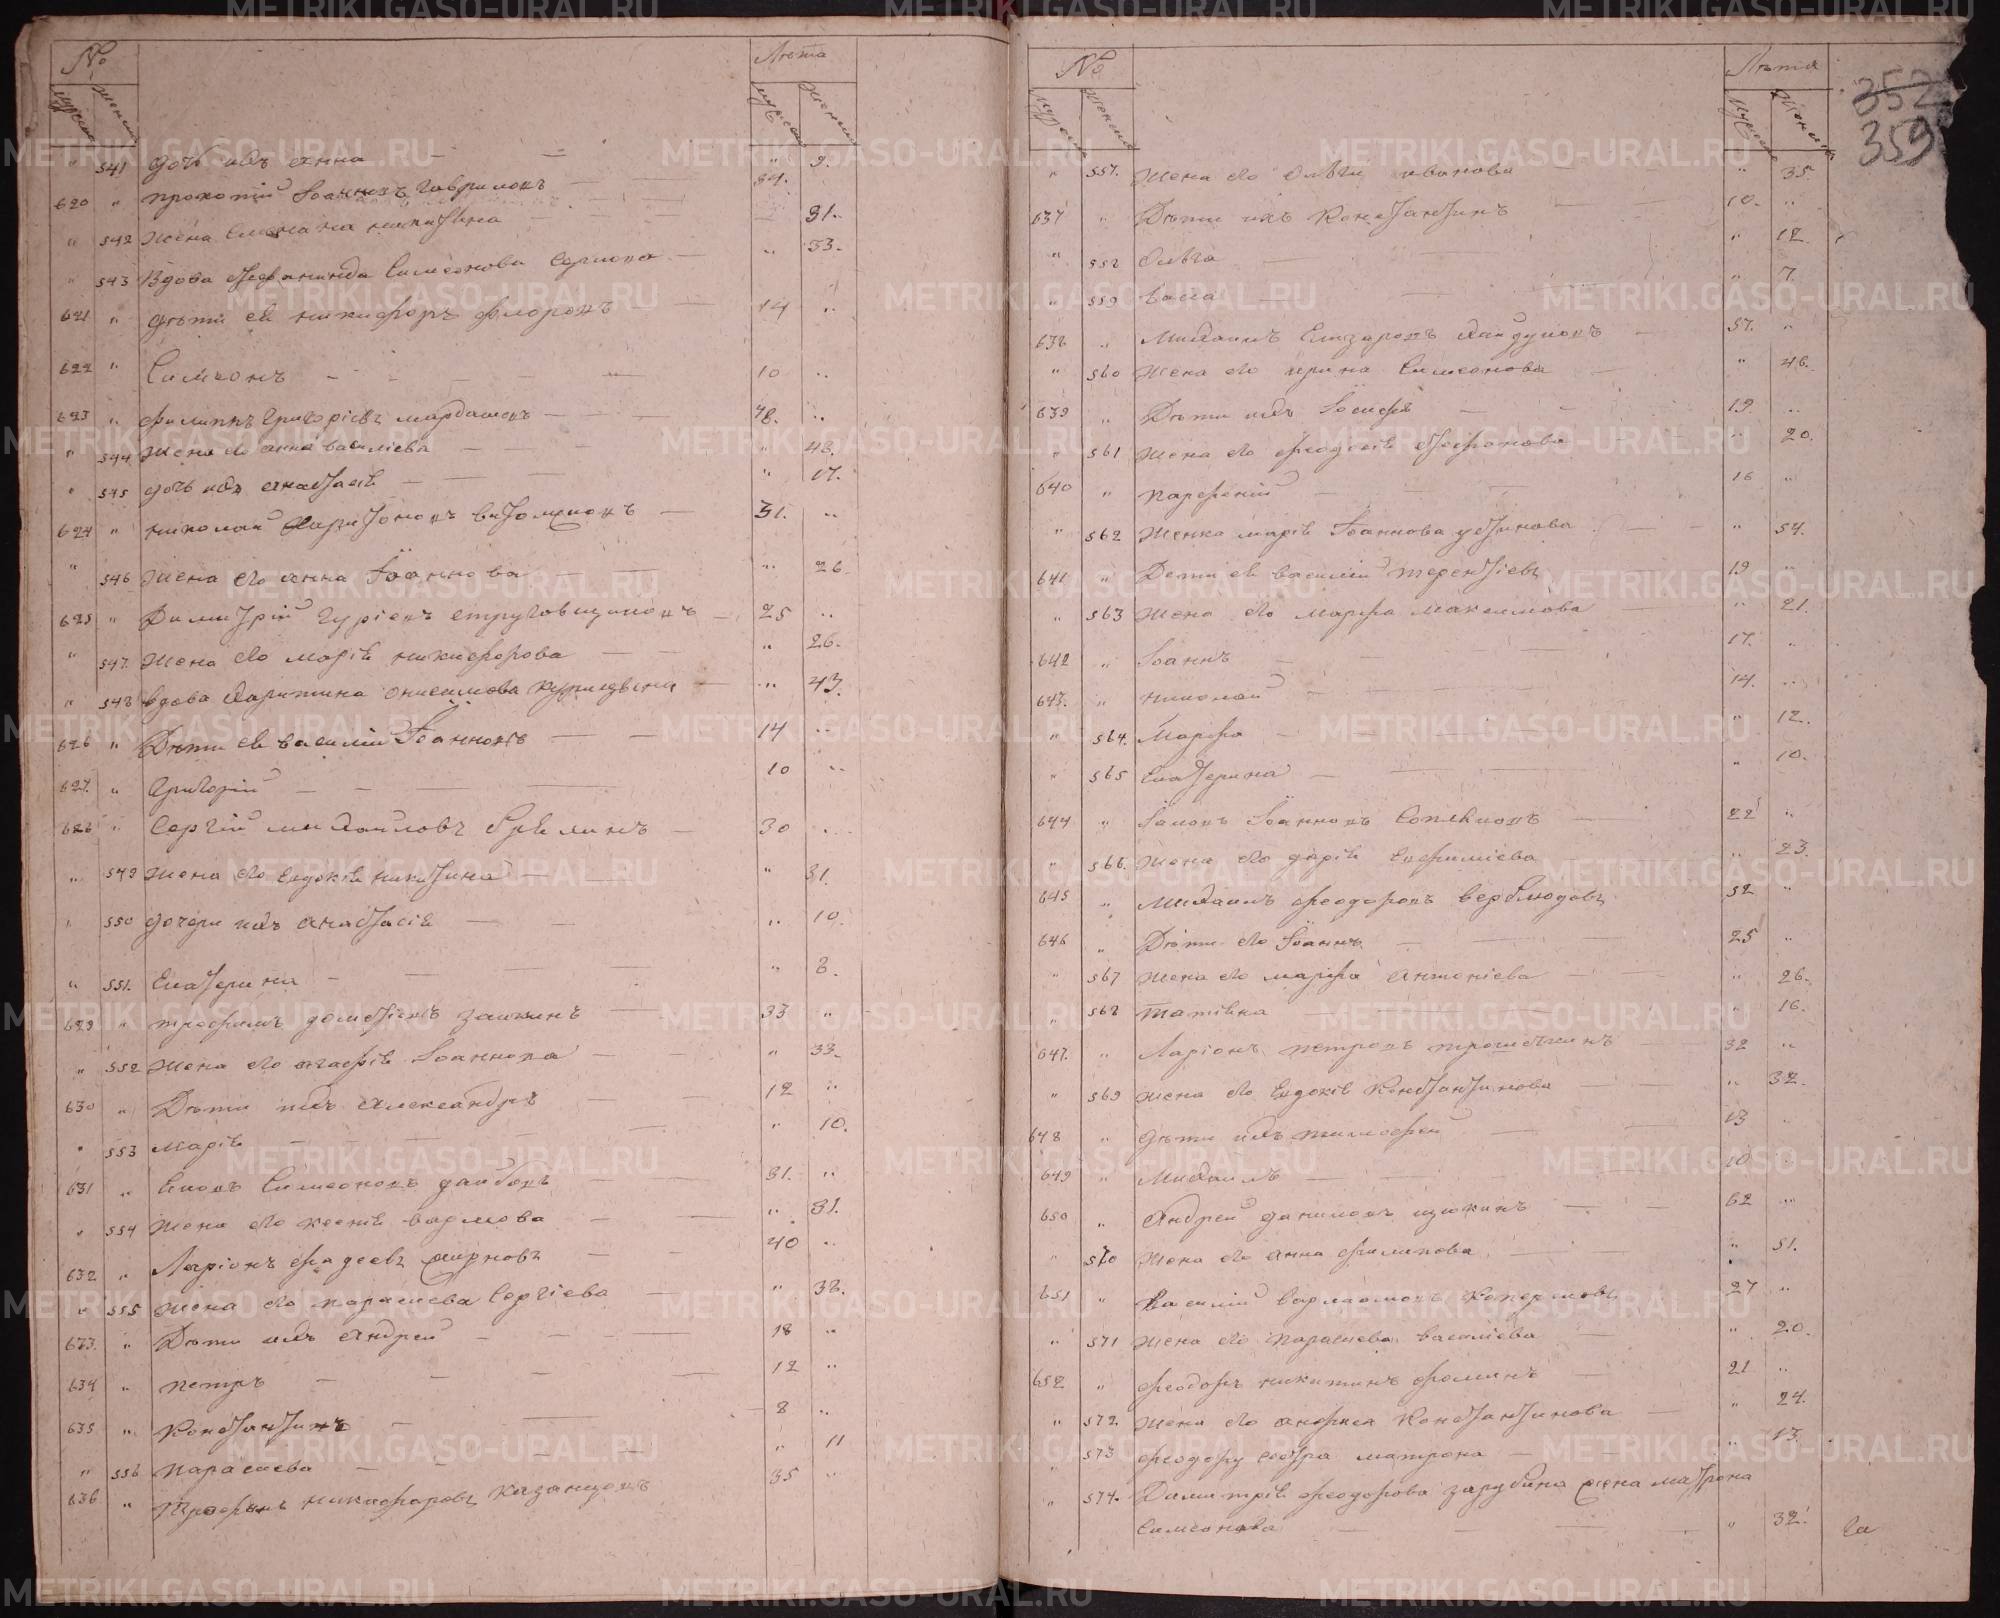 № Лѣта
мужеска женска мужеска женска
„ 541 дочь ихъ Анна — — „ 9.
620 „ Прокопій Іоанновъ Гавриловъ — 34.
„ 542 жена Симкина Никитина — — 31.
„ 543 Вдова Стефанида Симеонова — „ 33.
621 „ дѣти ея Никифоръ Флоровъ — 14 „
622 „ Симеонъ — — — 10 „
623 „ Филиппъ Григоріевъ — — 48. „
„ 544 жена его Анна Василіева — „ 48.
„ 545 дочь ихъ Анастасія — — „ 17.
624 „ Николай Харитоновъ — 31. „
„ 546 жена его Анна Іоаннова — — „ 26.
625 „ Димитрій Гуріевъ Струговщиковъ — 25 „
„ 547. жена его Марія Никифорова — — „ 26.
„ 548 вдова Харитина Онисимова — „ 43.
626 „ Дѣти ея Василій Іоанновъ — — 14 „
627. „ Григорій — — — 10 „
628 „ Сергій Михайловъ — 30 „
„ 549 жена его Евдокія Никитина — — „ 31.
„ 550 дочери ихъ Анастасія — — „ 10.
„ 551. Екатерина — — — „ 8.
629 „ Трофимъ Дометіевъ Заикинъ — 33 „
„ 552 жена его Агафія Іоаннова — „ 33.
630 „ Дѣти ихъ Александръ — — 12 „
„ 553 Марія — — — „ 10.
631 „ Симеоновъ — 31. „
„ 554 жена его Ксенія Карпова — — „ 31.
632 „ Ларіонъ Фадеевъ — — 40 „
„ 555 жена его Параскева Сергіева — „ 38.
633. „ Дѣти ихъ Андрей — — — 18 „
634 „ Петръ — — — 12 „
635 „ Константинъ — — 8 „
„ 556 Параскева — — — „ 11
636 „ Трофимъ Никифоровъ Казанцовъ 35 „
№ Лѣта 352
мужеска женска мужеска женска 359
„ 557. жена его Ольга Иванова — „ 35.
637 „ Дѣти ихъ Константинъ — — 10. „
„ 558 Ольга — — — „ 12.
„ 559 Васса — — — „ 7.
638 „ Михаилъ Елизаровъ — 57. „
„ 560 жена его Ирина Симеонова — „ 46.
639 „ Дѣти ихъ Іосифъ — — 19. „
„ 561 жена его Феодосія Стефанова — „ 20.
640 „ Парфеній — — — 16 „
„ 562 Женка Марія Іоаннова Устинова — „ 54.
641 „ Дети ея Василій Терентіевъ 19 „
„ 563 жена его Марфа Максимова — „ 21.
642 „ Іоаннъ — — — 17. „
643. „ Николай — — — 14. „
„ 564. Марфа — — — „ 12.
„ 565 Екатерина — — — „ 10.
644 „ Іаковъ Іоанновъ — 22 „
„ 566. жена его Дарія Евфиміева — „ 23.
645 „ Михаилъ Феодоровъ Верблюдовъ 52 „
646 „ Дѣти его Іоаннъ — — 25 „
„ 567 жена его Марфа Антоніева — „ 26.
„ 568 Татіяна — — „ 16.
647. „ Ларіонъ Петровъ — 32 „
„ 569 жена его Евдокія Константинова — „ 32.
648 „ дѣти ихъ Тимофей — — 13 „
649 „ Михаилъ — — — 10 „
650 „ Андрей Даниловъ Щукинъ — — 62 „
„ 570 жена его Анна Филипова — — „ 51.
651 „ Василій Варлаамовъ 27 „
„ 571 жена его Параскева Василіева — „ 20.
652 „ Феодоръ Никитинъ Фоминъ — 21 „
„ 572. жена его Анфиса Константинова — „ 24.
„ 573 Феодору сестра Матрона — — „ 13.
„ 574. Димитрія Феодорова Зарубина жена Матрона
Симеонова — — — „ 32.